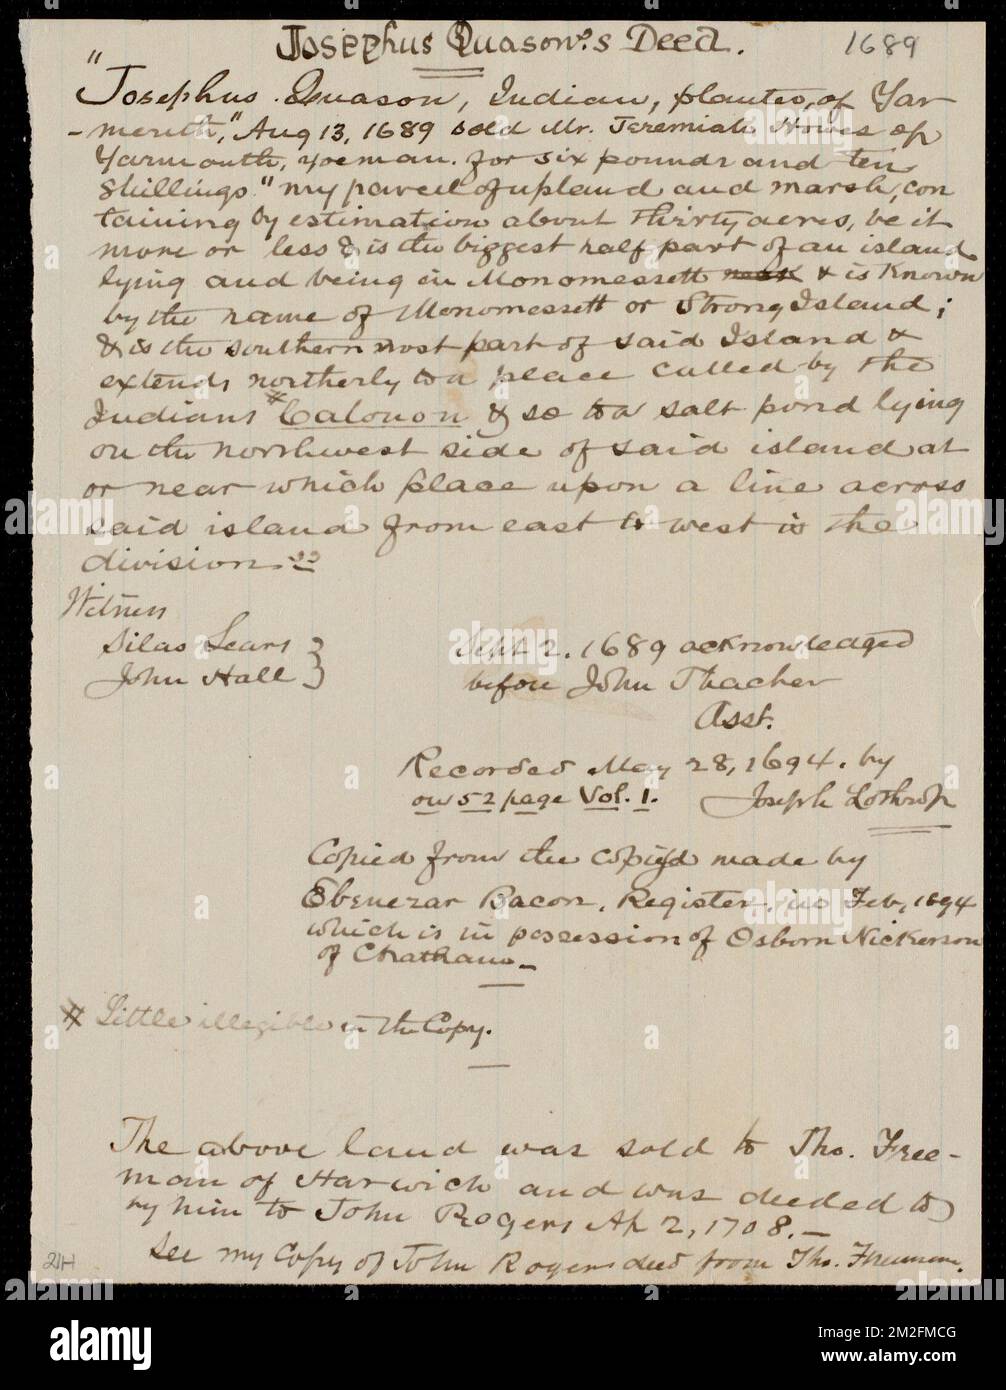 Josephus Quason's Deed. 1689
"Josephus Quason, Indian, planter, of Yar
-mouth," Aug 13, 1689 sold Mr. Jeremiah Howes of
Yarmouth, yoeman. for six pounds and ten
shillings "my parcel of upland and marsh, con
taining by estimation about thirty acres, be it
more or less & is the biggest half part of an island
lying and being in Monomessett neck & is known
by the name of Monomessett or Strong Island;
& is the southern most part of said Island &
extends northerly to a place called by the
Indians * Calouon & so to a salt pond lying
on the northwest side of said island at
or near which place upon a line across
said island from east to west is the
division."
Witness
Silas Sears }
John Hall }
Sept 2. 1689 acknowledged
before John Thacher
Asst.
Recorded May 28, 1694. by
on 52 page Vol. 1. Joseph Lothrop
Copied from the copy made by
Ebenezar Bacon, Register, in Feb, 1894
which is in possession of Osborn Nickerson
of Chatham_
* Little illegible in the Copy.
The above land was sold to Tho. Free-
man of Harwich and was deeded to
by him to John Rogers Ap 2, 1708.—
See my Copy of John Rogers deed from Tho. Freeman.
21H
alamy
Image ID: 2M2FMCG
www.alamy.com